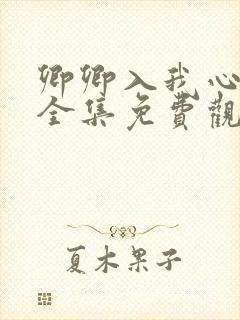 卿卿入我心
全集免費觀
夏木果子